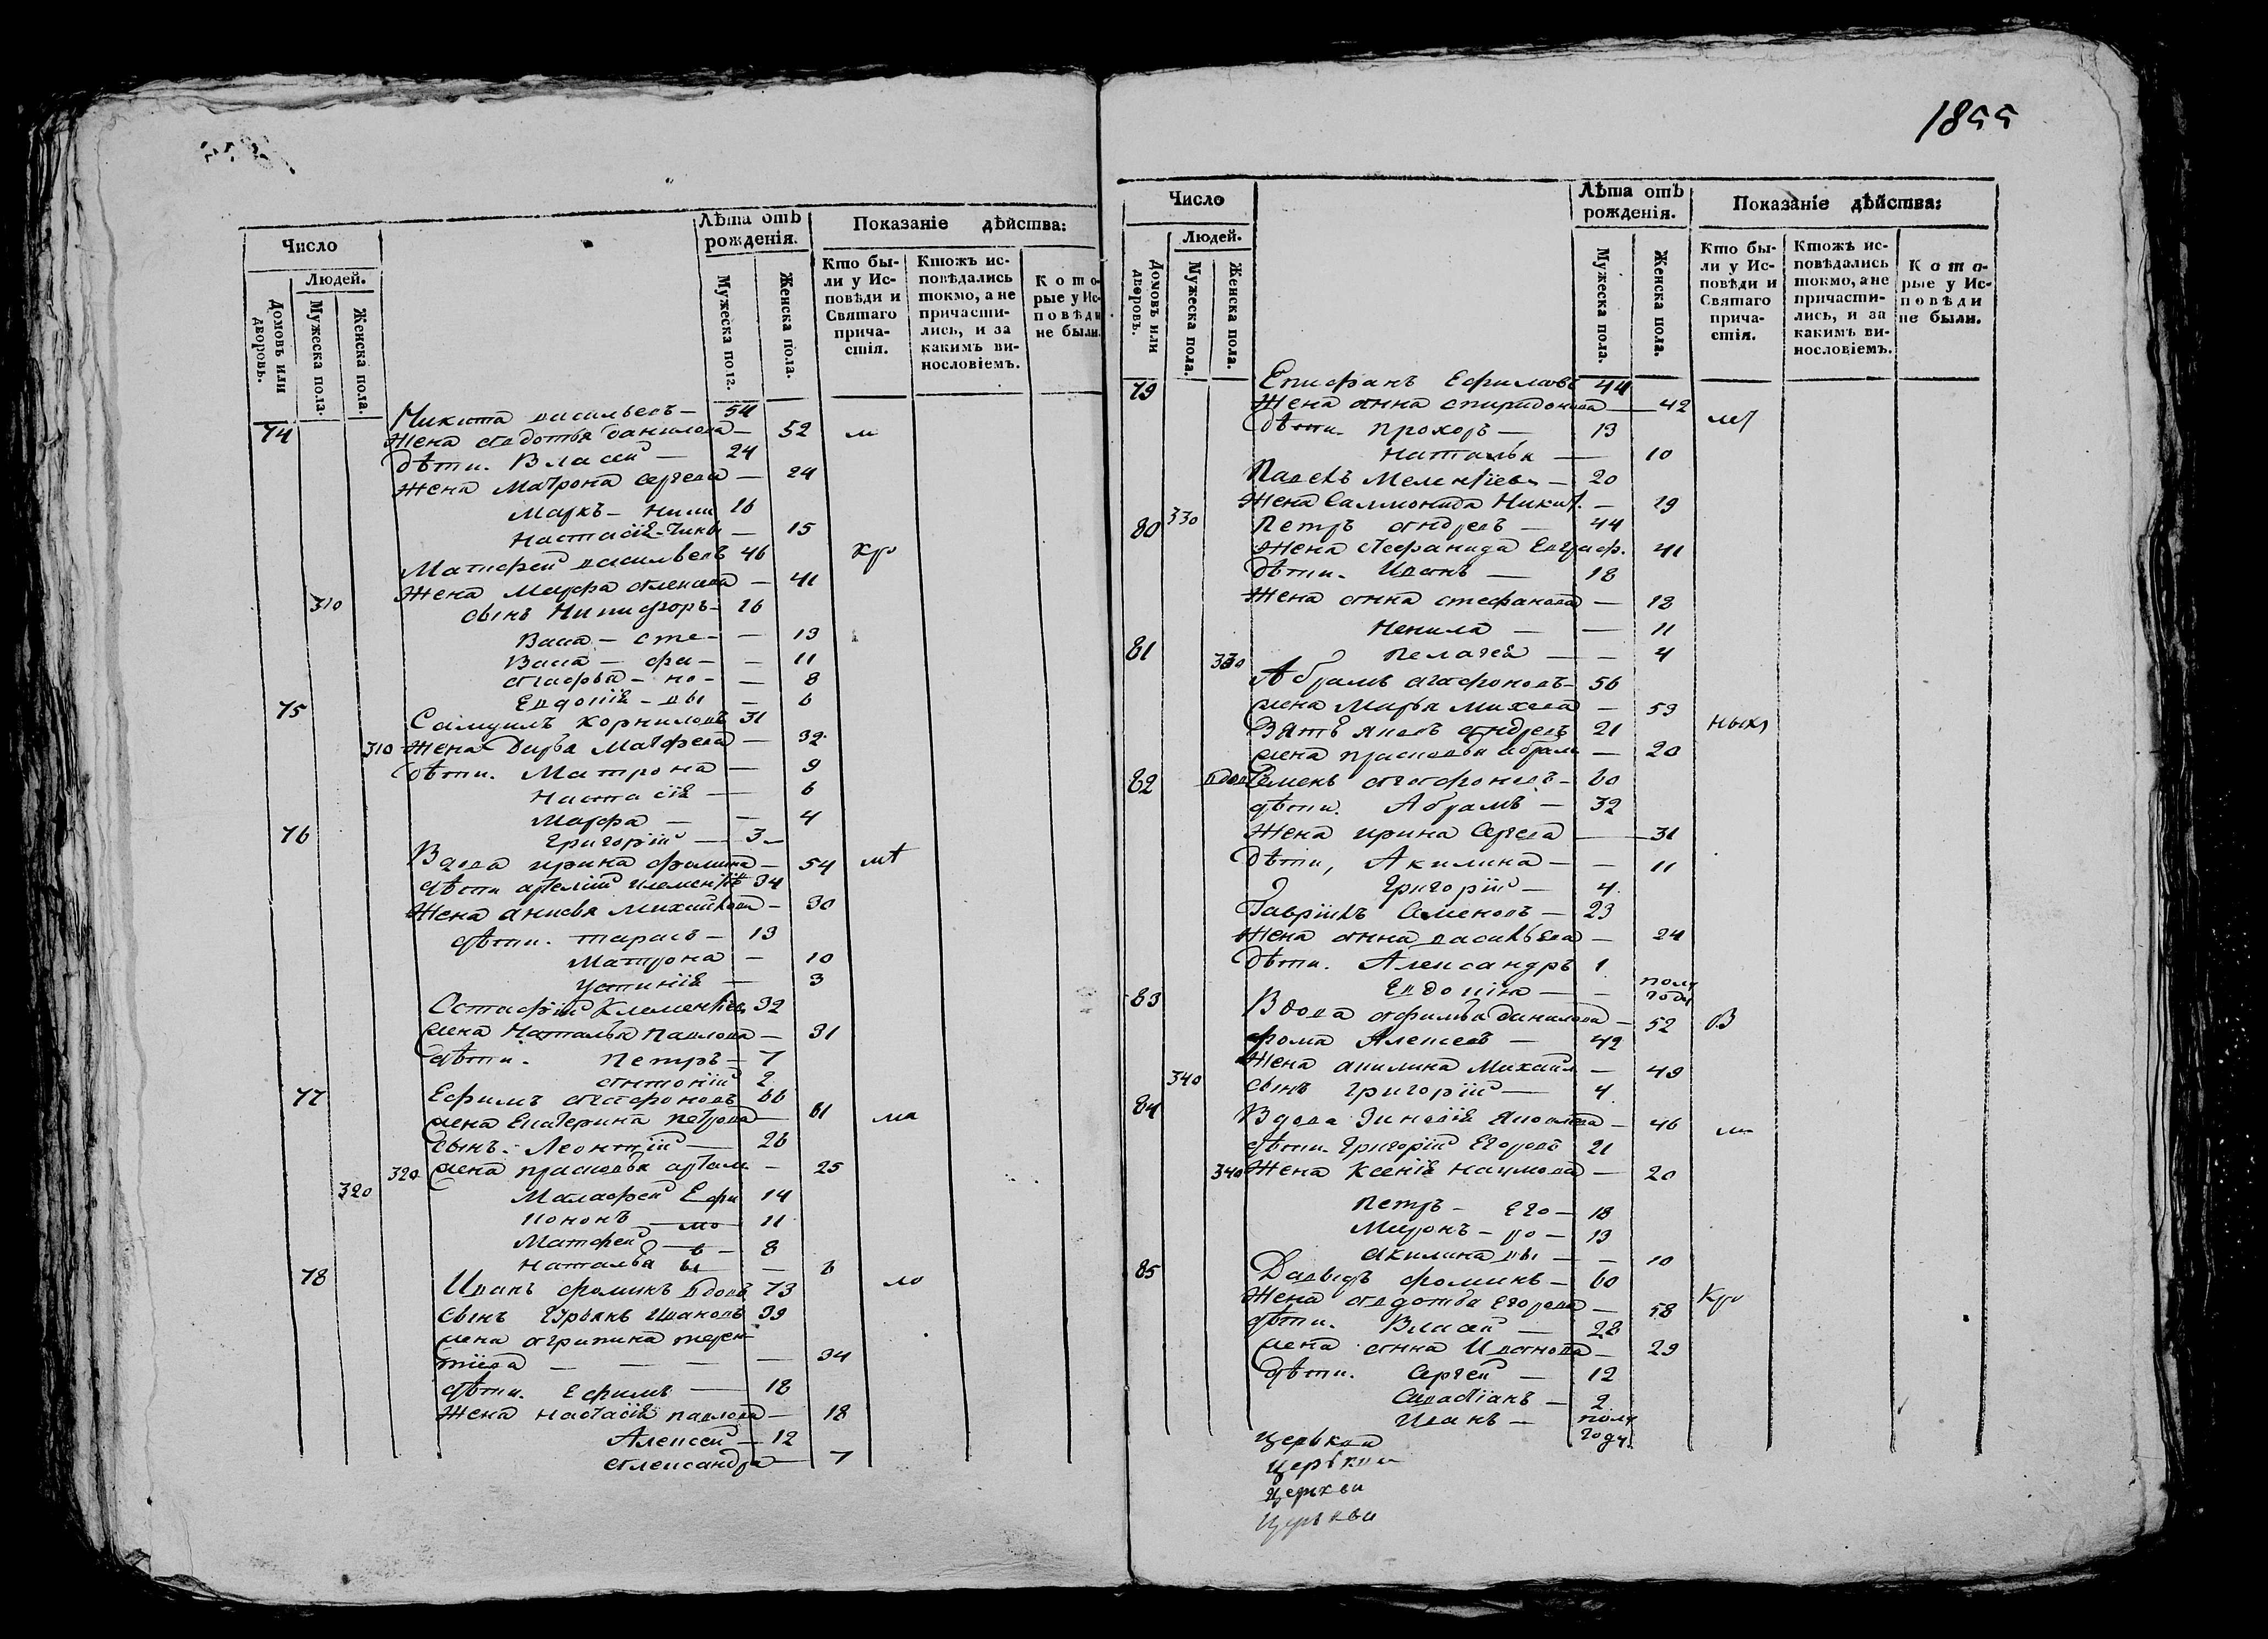 Число
Людей.
Домовъ или дворовъ.
Мужеска пола.
Женска пола.
Лѣта отъ рожденія.
Мужеска пола.
Женска пола.
Показаніе дѣйства:
Кто бы-
ли у Ис-
повѣди и
Святаго
прича-
стія.
Ктожъ ис-
повѣдались
токмо, а не
причасти-
лись, и за
какимъ ви-
нословіемъ.
Кото-
рые у Ис-
повѣди
не были.
74 Никита васильевъ — 54
Жена авдотья данилова — 52 м
дѣти. Власей — 24
Жена Матрона сергеева — 24
Маркъ — Ники 16
Настасія — 15
Матфей васильевъ 46 кро
Жена Марфа — 41
310 сынъ Никифоръ — 16
Васа — сте — — 13
Васа — фа — — 11
агафья — но — — 8
Евдокія — вы — 6
75 Самуилъ корниловъ 31
310 Жена Дарья Матфеева — 32
дѣти. Матрона — 9
Настасія — 6
Марфа — — 4
76 Григорій — 3 —
Вдова ирина фомина — 54
дѣти 34
Жена анисья Михайлова — 30
дѣти. тарасъ — 13
Матрона — 10
Устинія — 3
Остафій Клементіев 32
Жена Наталья Павлова — 31
дѣти. Петръ — 7
антоній 2
77 Ефимъ агафоновъ 66
жена Екатерина петрова — 61 ма
сынъ. Леонтій — 26
320 жена прасковья артам — 25
320 Малафей Ефи 14
кононъ — мо 11
Матфей — в — 8
Наталья вы — 6
78 Иванъ фоминъ вдовъ 73 ло
сынъ Гурьянъ Ивановъ 39
жена агрипина терен
тіева — — — — 34
дѣти. Ефимъ — 18
Жена Настасія павлова — 18
Алексей — 12
александра — 7
1855
Число
Людей.
Домовъ или дворовъ.
Мужеска пола.
Женска пола.
Лѣта отъ рожденія.
Мужеска пола.
Женска пола.
Показаніе дѣйства:
Кто бы-
ли у Ис-
повѣди и
Святаго
прича-
стія.
Ктожъ ис-
повѣдались
токмо, а не
причасти-
лись, и за
какимъ ви-
нословіемъ.
Кото-
рые у Ис-
повѣди
не были.
79 Епифанъ Ефимовъ 44
Жена анна спиридонова — 42
дѣти. прохоръ — 13
Наталья — 10
Павелъ Мелентіевъ — 20
Жена Саломонида Никит. — 19
80 330 Петръ андреевъ — 44
Жена Евграф. 41
дѣти. Иванъ — 18
Жена анна стефанова — 18
Ненила — — 11
81 330 Пелагея — — 4
Абрамъ агафоновъ — 56
жена Марья Михеева — 59
Зять яковъ андреевъ 21 ныхъ
жена прасковья абрам — 20
82 вдов Семенъ агафоновъ — 60
дѣти. Абрамъ — 32
Жена ирина Сергеева — 31
дѣти, Акилина — — 11
Григорій — 4.
Гаврилъ Семеновъ — 23
Жена анна васильева — 24
дѣти. Александръ 1
Евдокіа — — полу году
83 Вдова афимья данилова — 52 в
фома Алексеевъ — 42
Жена акилина Михаил — 49
340 сынъ Григорій — 4.
84 Вдова Зиновія Яковлева — 46
дѣти. Григорій Егоровъ 21
340 Жена Ксенія Наумова — 20
Петръ — Его — 18
Миронъ — ро — 13
акилина вы — — 10
85 Давыдъ фоминъ — 60
Жена авдотья Егорова — 58 кро
дѣти. Власей — 28
жена анна Иванова — 29
дѣти. Сергей — 12
Савастіанъ — 2
Иванъ — полу году.
Церькви
Церькви
Церкви
Церькви